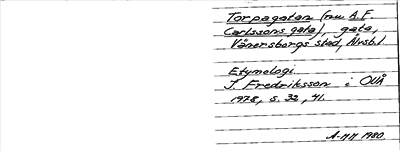 Torpagatan (nu A.F.
Carlssons gata), gata,
Vänersborgs stad, Älvsb.l.
Etymologi
J. Fredriksson i OUÅ
1978, s. 32, 41.
A-MH 1980